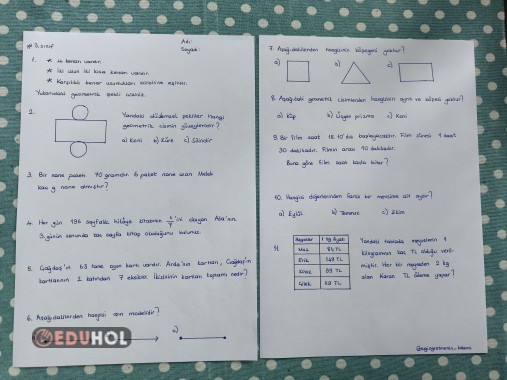 # 3. sınıf
Adı:
Soyadı:
1. * 4 kenarı vardır.
* İki uzun iki kısa kenarı vardır.
* Karşılıklı kenar uzunlukları birbirine eşittir.
Yukarıdaki geometrik şekli çiziniz.
2. Yandaki düzlemsel şekiller hangi
geometrik cismin yüzeyleridir?
a) Koni b) Küre c) Silindir
3. Bir nane paketi 70 gramdır. 6 paket nane alan Melek
kaç g nane almıştır?
4. Her gün 196 sayfalık hikâye kitabının 'ini okuyan Ata'nın
3. günün sonunda kaç sayfa kitap okuduğunu bulunuz.
5. Çağdaş'ın 63 tane oyun kartı vardır. Arda'nın kartları, Çağdaş'ın
kartlarının 2 katından 7 eksiktir. İkisinin kartları toplamı nedir?
6. Aşağıdakilerden hangisi ışın modelidir?
EDUHOL
7. Aşağıdakilerden hangisinin köşegeni yoktur?
a) b) c)
8. Aşağıdaki geometrik cisimlerden hangisinin ayrıtı ve köşesi yoktur?
a) Küp b) Üçgen prizma c) Koni
9. Bir film saat 18.10'da başlayacaktır. Film süresi 1 saat
30 dakikadır. Filmin arası 10 dakikadır.
Buna göre film saat kaçta biter?
10. Hangisi diğerlerinden farklı bir mevsime ait aydır?
a) Eylül b) Temmuz c) Ekim
11.
Meyveler 1 kg fiyatı
Muz TL
Erik 149 TL
Kiraz 89 TL
Çilek 69 TL
Yandaki tabloda meyvelerin 1
kilogramının kaç TL olduğu veril-
miştir. Her bir meyveden 2 kg
alan Kaan TL ödeme yapar?